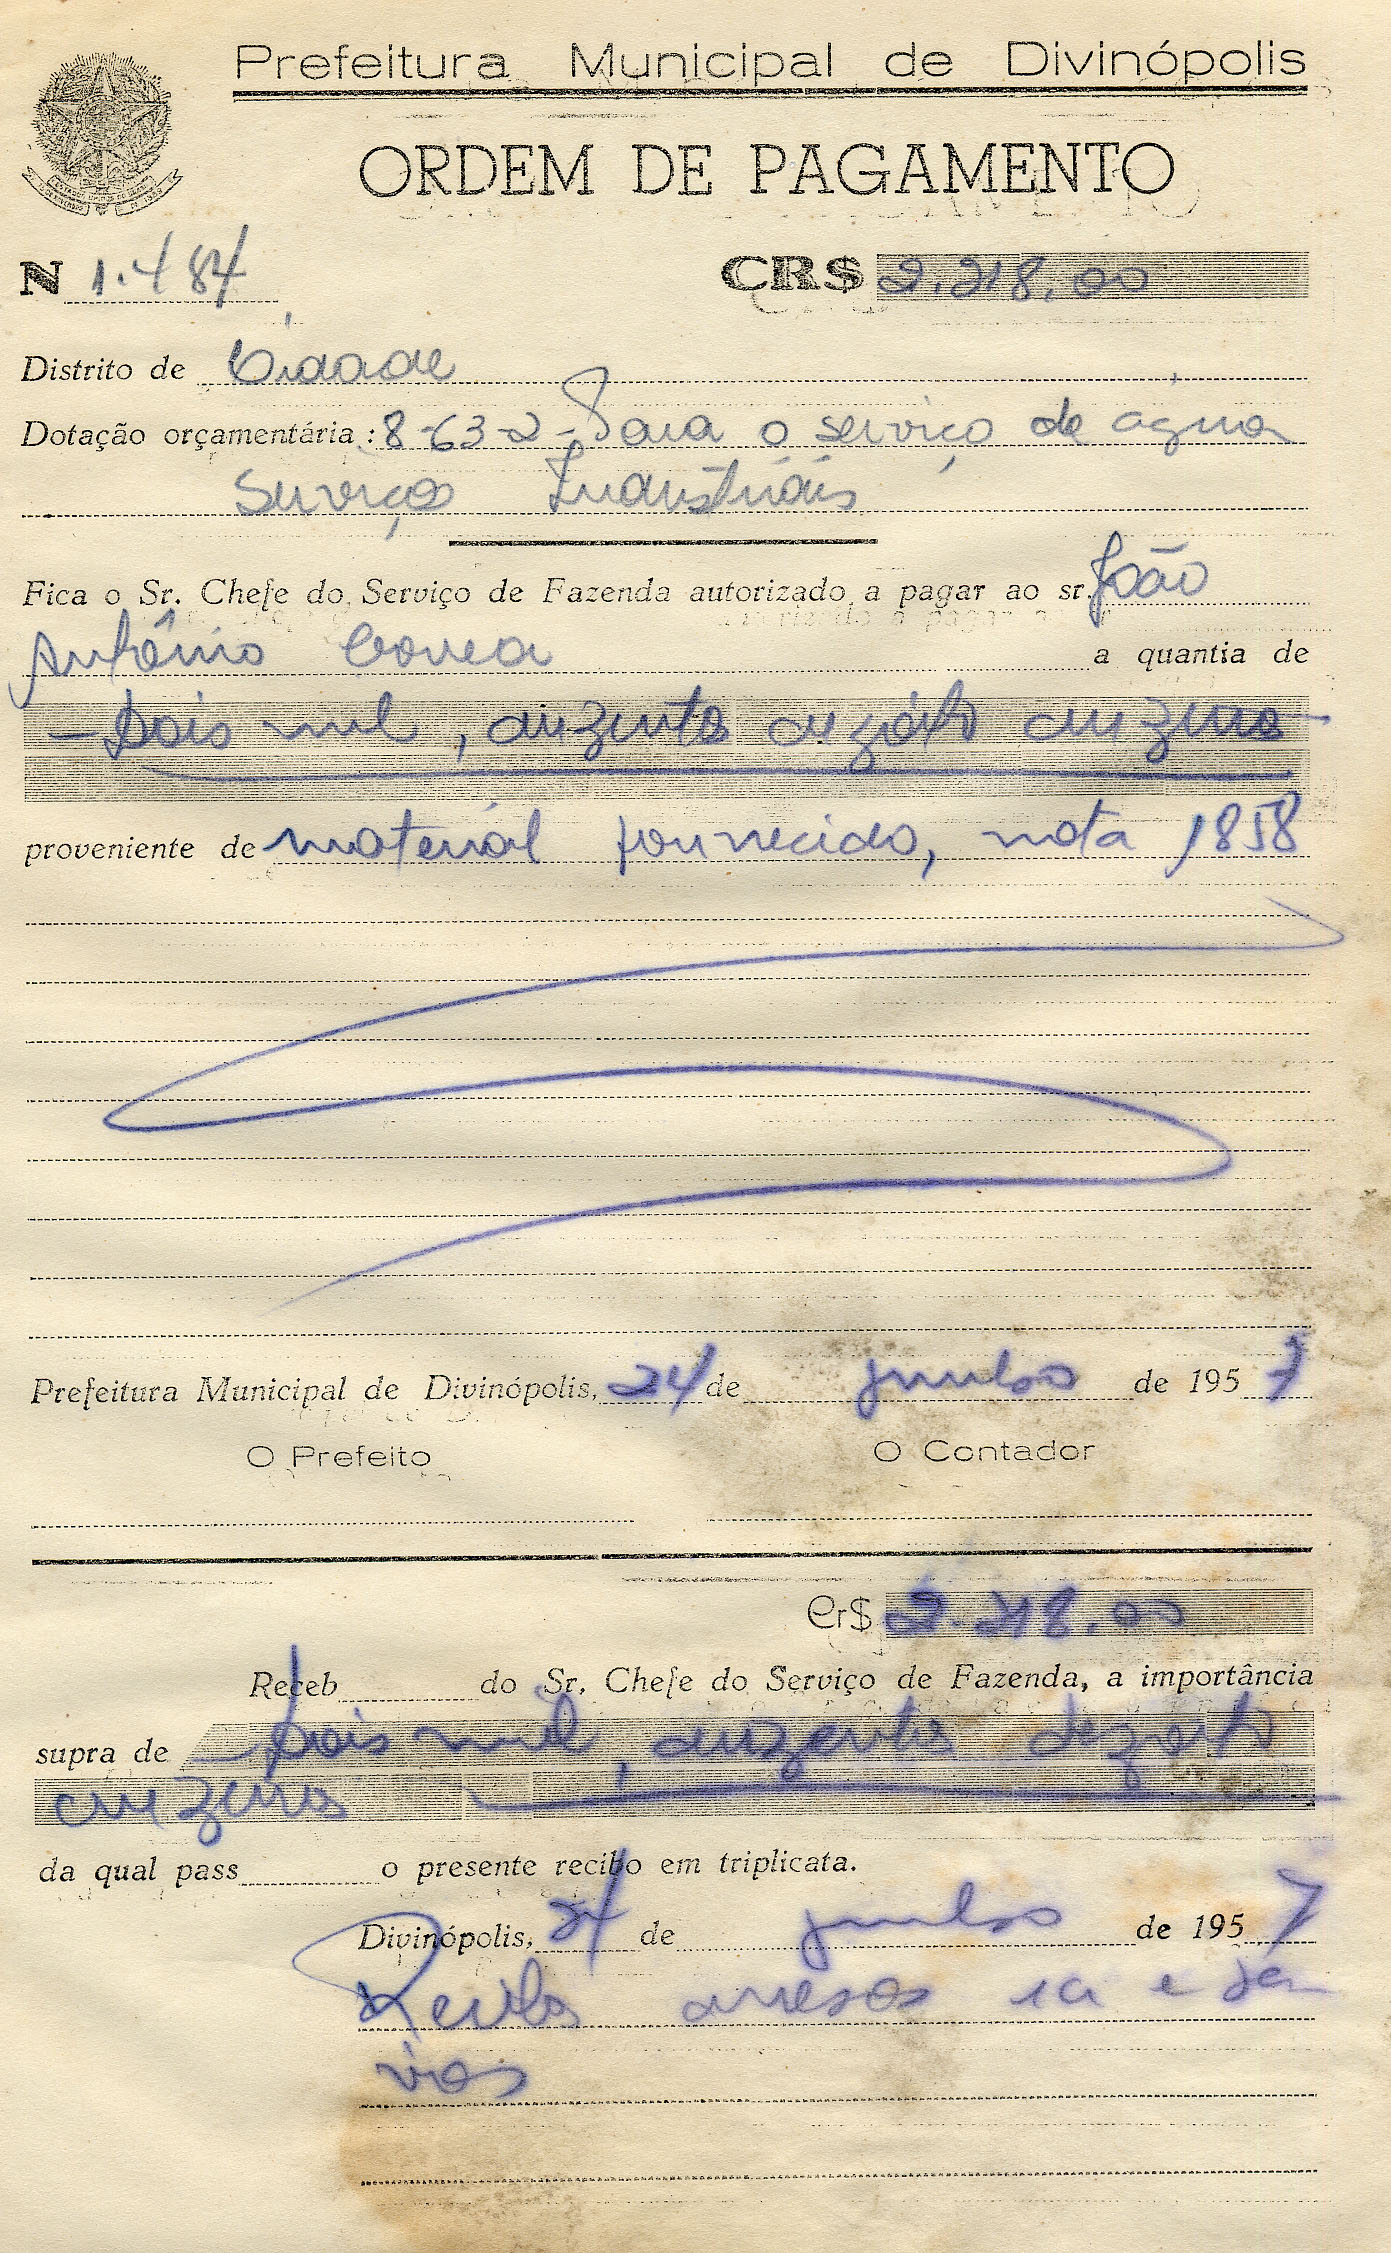 Prefeitura Municipal de Divinópolis
ORDEM DE PAGAMENTO
N 1.484 CR$ 2.218,00
Distrito de Cidade
Dotação orçamentária: 8-63-2 - Para o serviço de agua
Serviços Industriáis
Fica o Sr. Chefe do Serviço de Fazenda autorizado a pagar ao sr. João
Antônio Correa a quantia de
- Dois mil, duzentos dezóito cruzeiros -
proveniente de material fornecido, nota 1858
Prefeitura Municipal de Divinópolis, 24 de junho de 1957
O Prefeito O Contador
Cr$ 2.218,00
Receb do Sr. Chefe do Serviço de Fazenda, a importância
supra de - Dois mil, duzentos dezoito
cruzeiros
da qual pass o presente recibo em triplicata.
Divinópolis, 24 de junho de 1957
Recibos anexos 1a e 2a
vias